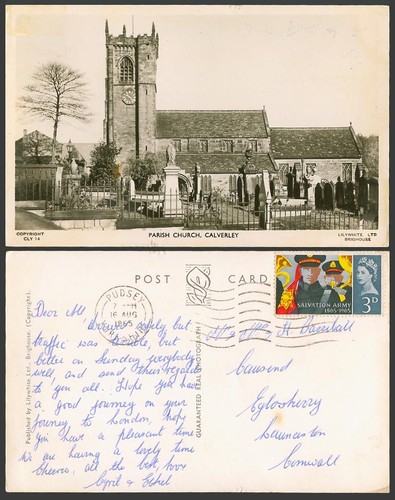 COPYRIGHT
CLY 14
PARISH CHURCH, CALVERLEY
LILYWHITE LTD
BRIGHOUSE
POST CARD
Published by Lilywhite Ltd., Brighouse. (Copyright).
GUARANTEED REAL PHOTOGRAPH
PUDSEY
16 AUG
1965
SALVATION ARMY
1865-1965
3D
Dear All
Arrived safely but
traffic was terrible, but
better on Sunday everybody
well and send their regards
to you all. Hope you have
a good journey on your
journey to London, hope
you have a pleasant time
We are having a lovely time
Cheerio, all the best,
Cyril & Ethel
Mr & Mrs H
Eglosherry
Launceston
Cornwall